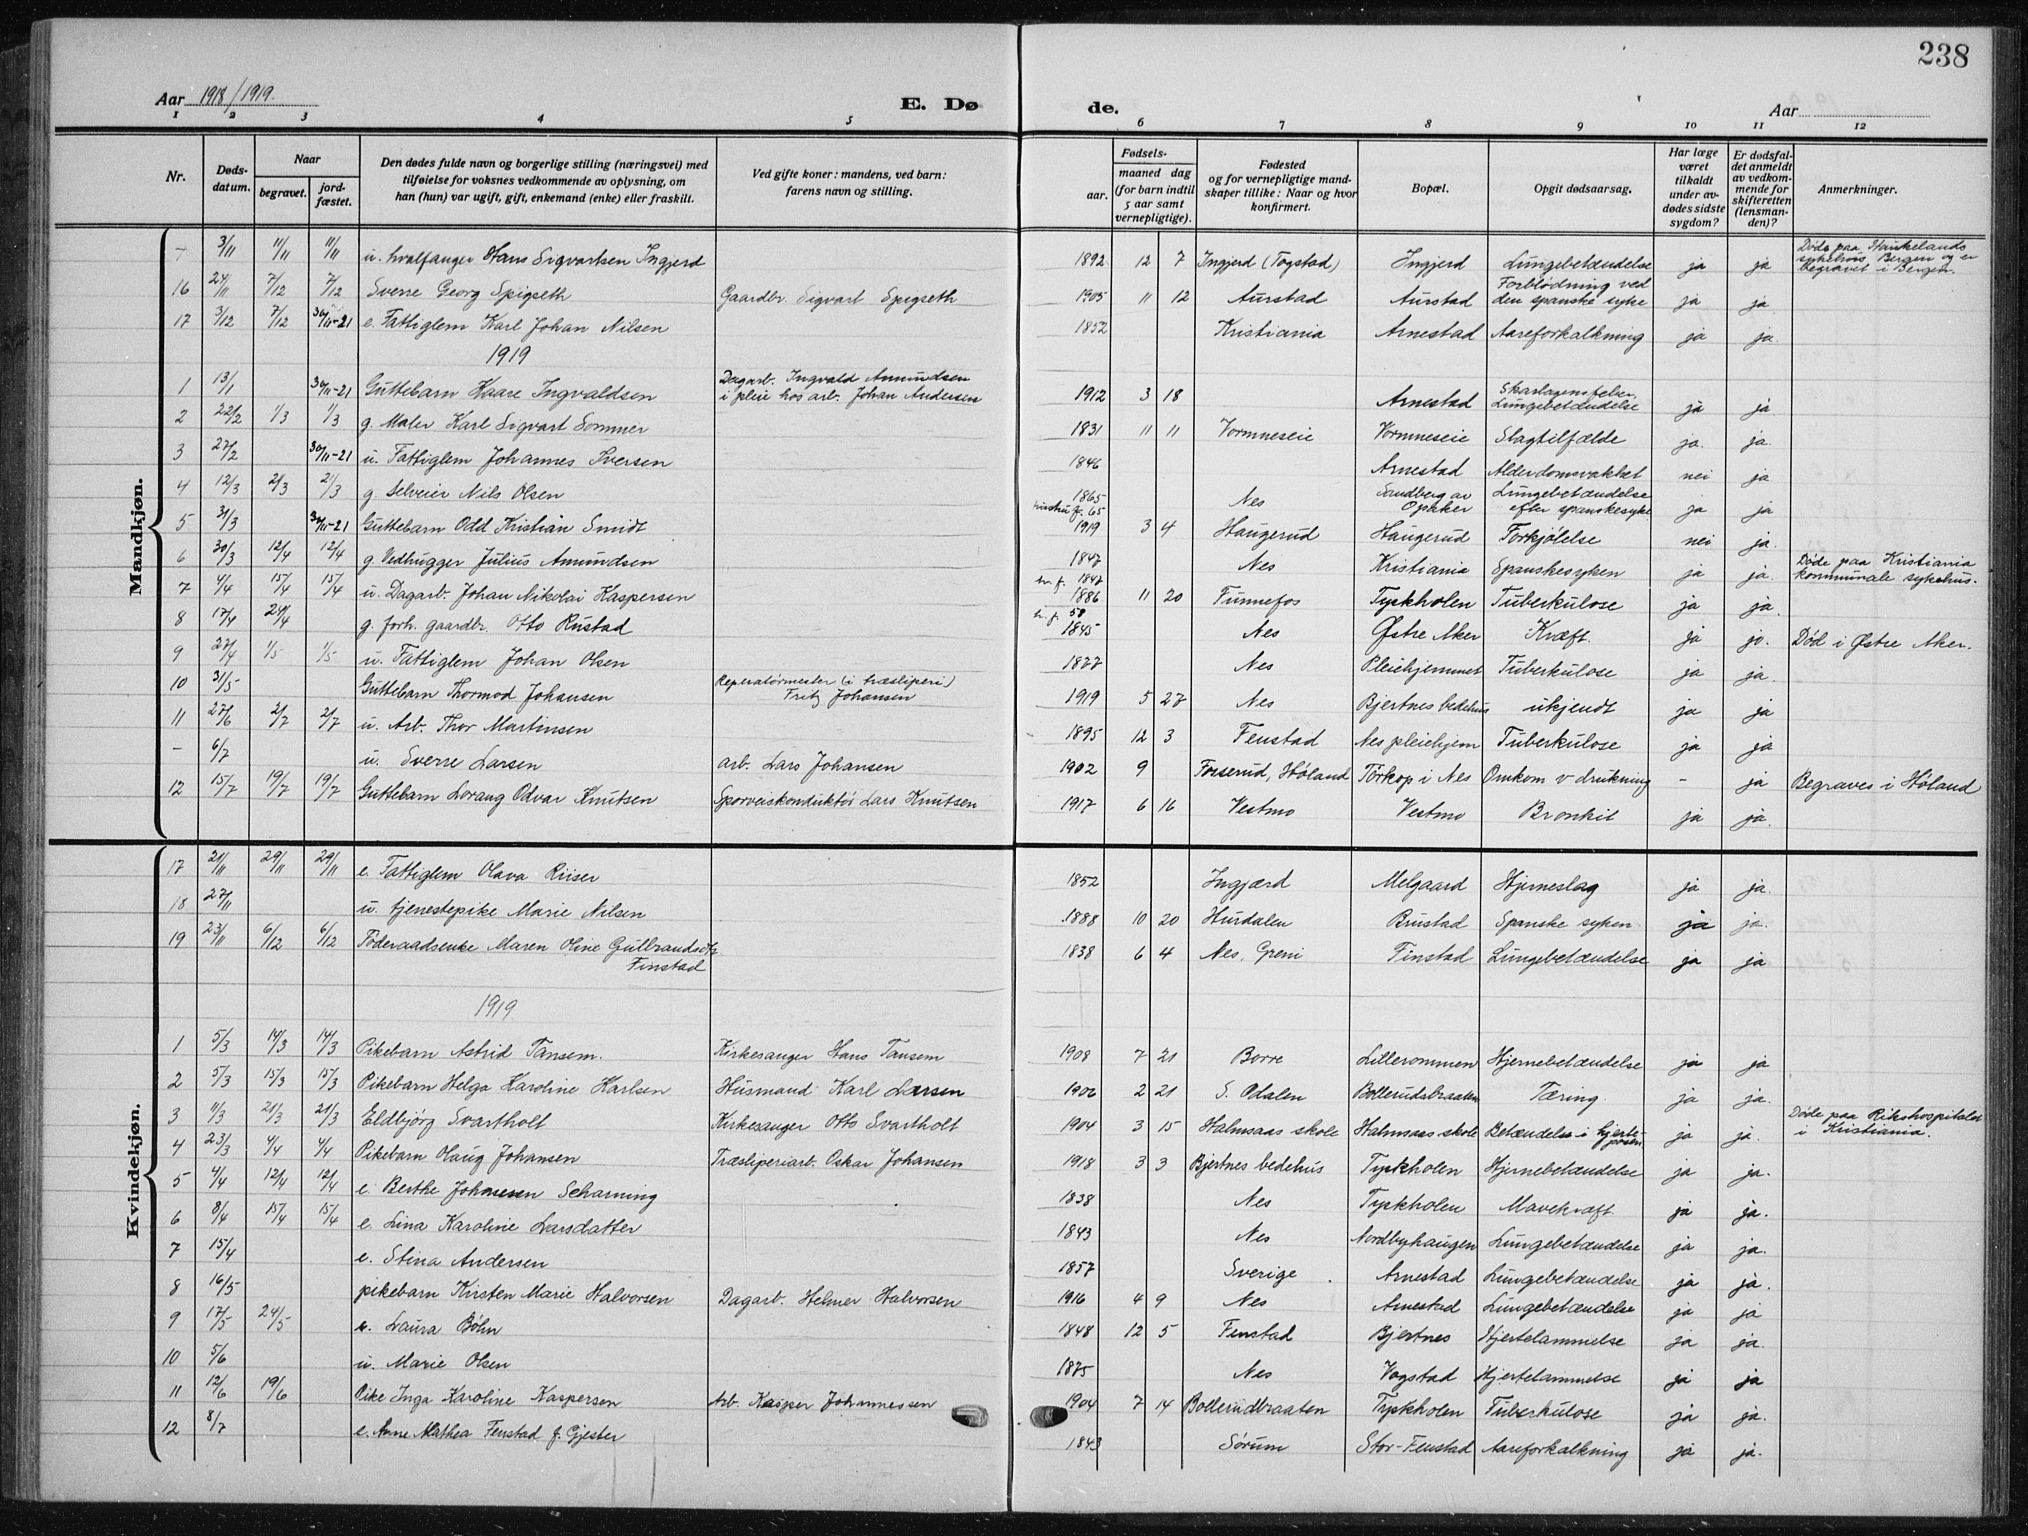 238
Aar 1918/1919.
E. Dø de.
Aar
1 2 3 4 5 6 7 8 9 10 11 12
Nr.
Døds-datum.
Naar
begravet.
jord-fæstet.
Den dødes fulde navn og borgerlige stilling (næringsvei) med tilføielse for voksnes vedkommende av oplysning, om han (hun) var ugift, gift, enkemand (enke) eller fraskilt.
Ved gifte koner: mandens, ved barn: farens navn og stilling.
Fødsels-
aar.
maaned dag
(for barn indtil 5 aar samt vernepligtige).
Fødested og for vernepligtige mandskaper tillike: Naar og hvor konfirmert.
Bopæl.
Opgit dødsaarsag.
Har læge været tilkaldt under avdødes sidste sygdom?
Er dødsfaldet anmeldt av vedkommende for skifteretten (lensmanden)?
Anmerkninger.
Mandkjøn.
- 3/11 11/11 11/11 u. hvalfanger Hans Sigvartsen Ingjerd 1892 12 7 Ingjerd (Togstad) Ingjerd Lungebetændelse ja ja Døde paa Haukelands sykehus, Bergen og er begravet i Bergen.
16 24/11 7/12 7/12 Sverre Georg Spigseth Gaardbr. Sigvart Spigseth 1905 11 12 Aurstad Aurstad Forblødning ved den spanske syke ja ja
17 3/12 7/12 30/11-21 e. Fattiglem Karl Johan Nilsen 1852 Kristiania Arnestad Aareforkalkning ja ja.
1919
1 13/1 30/11-21 Guttebarn Kaare Ingvaldsen Dagarb. Ingvald Amundsen i pleie hos arb. Johan Andersen 1912 3 18 Arnestad Skarlagensfeber, Lungebetændelse ja ja
2 22/2 1/3 1/3 g. Maler Karl Sigvart Sommer 1831 11 11 Vormneseie Vormneseie Slagtilfælde ja. ja.
3 27/2 30/11-21 u. Fattiglem Johannes Iversen 1846 Arnestad Alderdomsvakhet nei ja
4 12/3 21/3 21/3 g. Selveier Nils Olsen 1865 hustru f. 65 Nes Sandberg av Opaker Lungebetændelse efter spanskesyke ja ja
5 31/3 30/11-21 Guttebarn Odd Kristian Smidt 1919 3 4 Haugerud Haugerud Forkjølelse nei ja.
6 30/3 12/4 12/4 g. Vedhugger Julius Amundsen 1847 h. f. 1847 Nes Kristiania Spanskesyken ja ja. Døde paa Kristiania kommunale sykehus.
7 4/4 15/4 15/4 u. Dagarb. Johan Nikolai Kaspersen 1886 11 20 Funnefos Tyskholen Tuberkulose ja ja.
8 17/4 24/4 g. forh. gaardbr. Otto Rustad h. f. 58 1845 Nes Østre Aker Kræft. ja ja. Død i Østre Aker.
9 27/4 1/5 1/5 u. Fattiglem Johan Olsen 1877 Nes Pleiehjemmet Tuberkulose ja ja.
10 31/5 Guttebarn Thormod Johansen Reperatørmester (i træsliperi) Fritz Johansen 1919 5 27 Nes Bjertnes bedehus ukjendt ja ja
11 27/6 2/7 2/7 u. Arb. Thor Martinsen 1895 12 3 Fenstad Nes pleiehjem Tuberkulose ja ja
- 6/7 u. Sverre Larsen arb. Lars Johansen 1902 9 Fosserud, Høland Törkop i Nes Omkom v drukning - ja Begraves i Høland
12 15/7 19/7 19/7 Guttebarn Lorang Odvar Knutsen Sporveiskonduktør Lars Knutsen 1917 6 16 Vestmo Vestmo Bronkit ja ja.
Kvindekjøn.
17 21/11 29/11 29/11 e. Fattiglem Olava Riiser 1852 Ingjærd Melgaard Hjerneslag ja ja.
18 27/11 u. tjenestepike Marie Nilsen 1888 10 20 Hurdalen Brustad Spanske syken ja ja.
19 23/11 6/12 6/12 Föderaadsenke Maren Oline Gulbrandsdtr Finstad 1838 6 4 Nes, Greni Finstad Lungebetændelse ja ja
1919
1 5/3 14/3 14/3 Pikebarn Astrid Tansem. Kirkesanger Hans Tansem 1908 7 21 Borre Lillerommen Hjernebetændelse ja ja
2 5/3 15/3 15/3 Pikebarn Helga Karoline Karlsen Husmand Karl Larsen 1906 2 21 S. Odalen Bollerudsbraaten Tæring ja ja.
3 11/3 21/3 21/3 Eldbjörg Svartholt Kirkesanger Otto Svartholt 1904 3 15 Halmsaas skole Halmsaas skole Betændelse i hjerteposen ja ja. Døde paa Rikshospitalet i Kristiania.
4 23/3 4/4 4/4 Pikebarn Olaug Johansen Træsliperiarb. Oskar Johansen 1918 3 3 Bjertnes bedehus Tyskholen Hjernebetændelse ja ja.
5 4/4 12/4 12/4 e. Berthe Johansen Scharning 1838 Nes Tyskholen Mavekræft. ja ja.
6 8/4 15/4 15/4 e. Lina Karoline Larsdatter 1843 Nes Nordbyhaugen Lungebetændelse ja ja.
7 15/4 e. Stina Andersen 1857 Sverige Arnestad Lungebetændelse ja ja.
8 16/5 pikebarn Kirsten Marie Halvorsen Dagarb. Helmer Halvorsen 1916 4 9 Nes Arnestad Lungebetændelse ja ja
9 17/5 24/5 e. Laura Böhn 1848 12 5 Fenstad Bjertnes Hjertelammelse ja ja
10 5/6 u. Marie Olsen 1875 Nes Vogstad Hjertelammelse ja ja
11 12/6 19/6 Pike Inga Karoline Kaspersen Arb. Kasper Johannessen 1904 7 14 Bollerudbraaten Tyskholen Tuberkulose ja ja.
12 8/7 e. Anne Mathea Fenstad f. Gjester 1843 Sørum Stor-Fenstad Aareforkalkning ja ja.